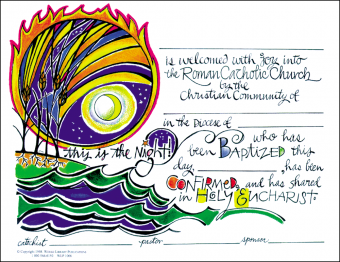 is welcomed with joy into
the Roman Catholic Church
by the
Christian Community of
in the Diocese of
who has
this is the Night!
been Baptized this
day, has been
Confirmed, and has shared
in Holy Eucharist.
catechist pastor sponsor